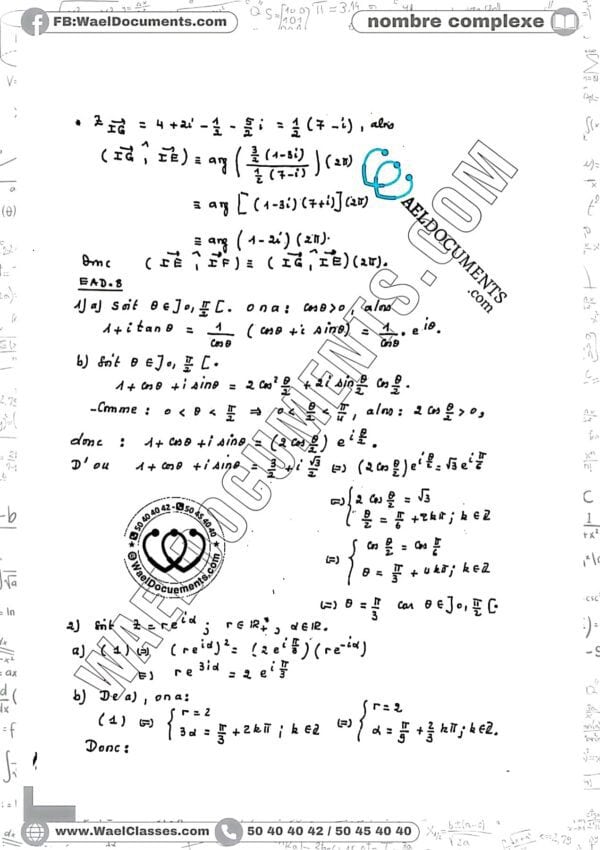 FB:WaelDocuments.com
nombre complexe
• Z_IG⃗ = 4 + 2i - 1/2 - 5/2 i = 1/2 (7 - i), alors
(IG⃗ ^, IE⃗) ≡ arg ( (3/2 (1-3i)) / (1/2 (7-i)) ) (2π)
≡ arg [(1-3i)(7+i)] (2π)
≡ arg (1-2i) (2π).
Donc (IE⃗ ^, IF⃗) ≡ (IG⃗ ^, IE⃗) (2π).
EAD.8
1) a) Soit θ ∈ ]0, π/2 [. on a : cosθ > 0, alors
1 + i tan θ = 1/cosθ (cosθ + i sinθ) = 1/cosθ . e^iθ.
b) Soit θ ∈ ]0, π/2 [.
1 + cosθ + i sinθ = 2 cos² θ/2 + 2i sin θ/2 cos θ/2.
-Comme : 0 < θ < π/2 ⇒ 0 < θ/2 < π/4, alors : 2 cos θ/2 > 0,
donc : 1 + cosθ + i sinθ = (2 cos θ/2) e^(i θ/2).
D'où 1 + cosθ + i sinθ = 3/2 + i √3/2 (=) (2 cos θ/2) e^(i θ/2) = √3 e^(i π/6)
(=) { 2 cos θ/2 = √3
θ/2 = π/6 + 2kπ ; k ∈ Z
(=) { cos θ/2 = cos π/6
θ = π/3 + 4kπ ; k ∈ Z
(=) θ = π/3 car θ ∈ ]0, π/2 [.
2) Soit Z = re^iα ; r ∈ IR*₊, α ∈ IR.
a) (1) (=) (re^iα)² = (2e^(i π/3)) (re^-iα)
(=) re^3iα = 2 e^(i π/3)
b) De a), on a :
(1) (=) { r = 2
3α = π/3 + 2kπ ; k ∈ Z
(=) { r = 2
α = π/9 + 2/3 kπ ; k ∈ Z.
Donc :
WAELDOCUMENTS.COM
AELDOCUMENTS
.com
50 40 40 42 - 50 45 40 40
@WaelDocuements.com
www.WaelClasses.com
50 40 40 42 / 50 45 40 40